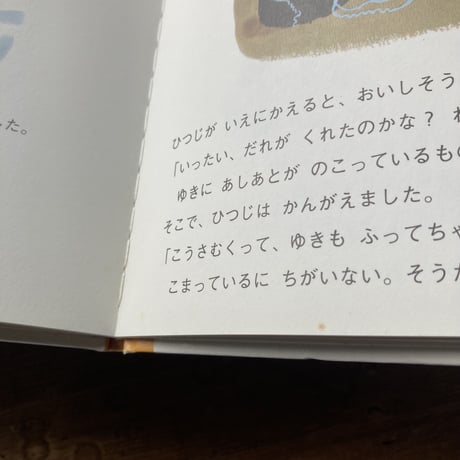 た。
ひつじが いえにかえると、おいしそう
「いったい、だれが くれたのかな？
ゆきに あしあとが のこっているもの
そこで、ひつじは かんがえました。
「こうさむくって、ゆきも ふってちゃ
こまっているに ちがいない。そうだ